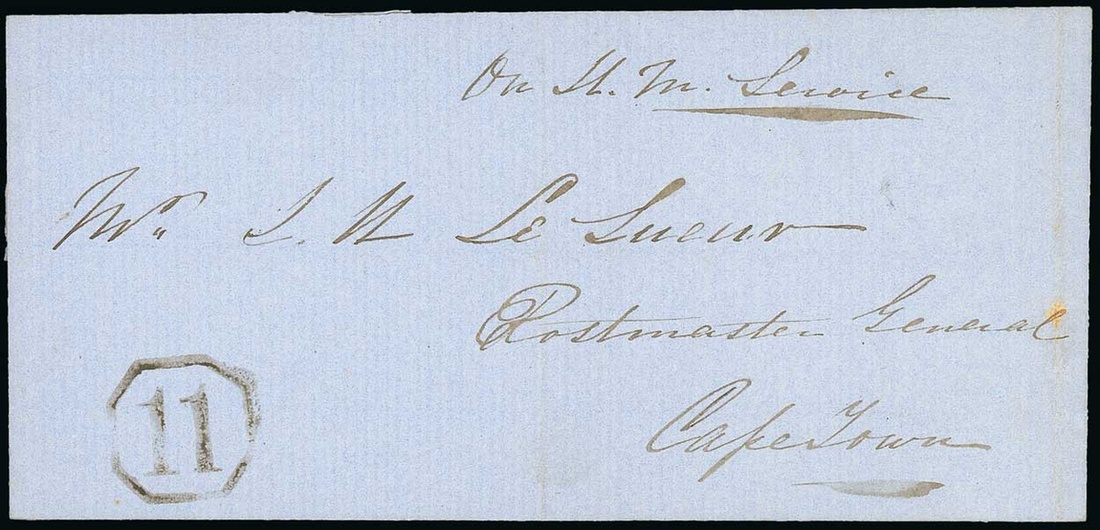 On H. M. Service
Mr. J. H Le Sueur
Postmaster General
Cape Town
11